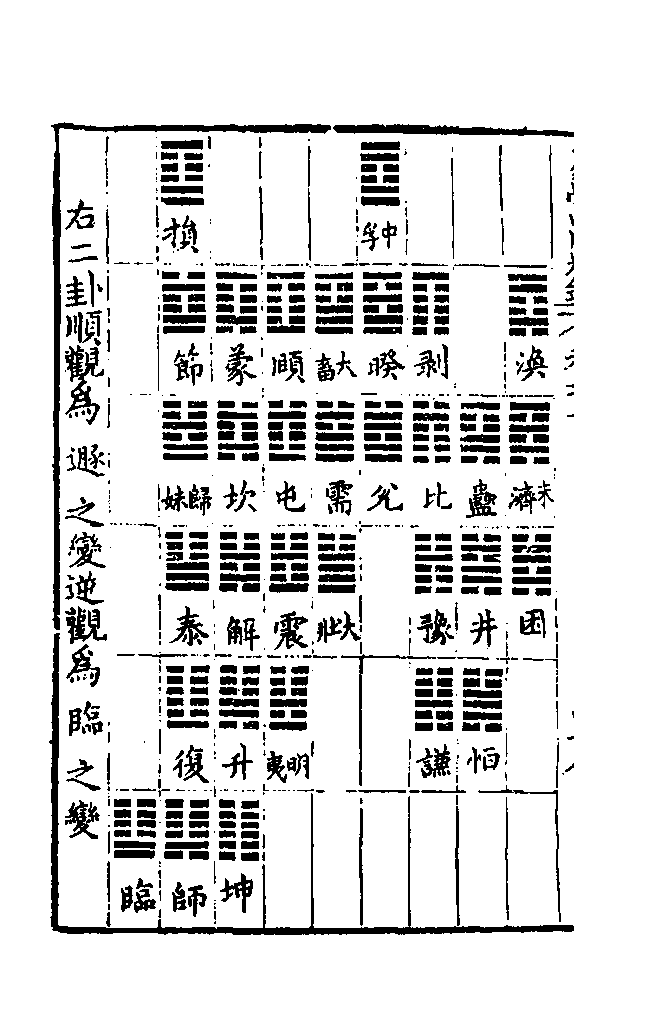 中孚 損
渙 剥 睽 大畜 頤 蒙 節
未濟 蠱 比 兌 需 屯 坎 歸妹
困 井 豫 大壯 震 解 泰
恒 謙 明夷 升 復
坤 師 臨
右二卦順觀為遯之變逆觀為臨之變